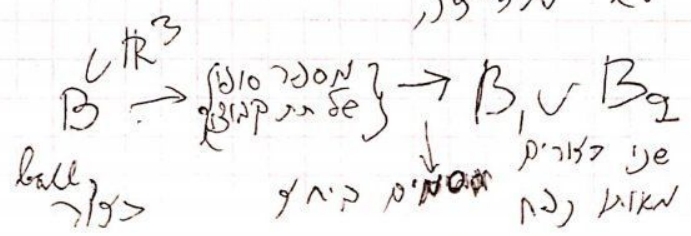 ℝ³
B → {מספר סופי של תת קבוצות} → B₁ ∪ B₂
ball,
כדור
שני כדורים
מאותו נפח